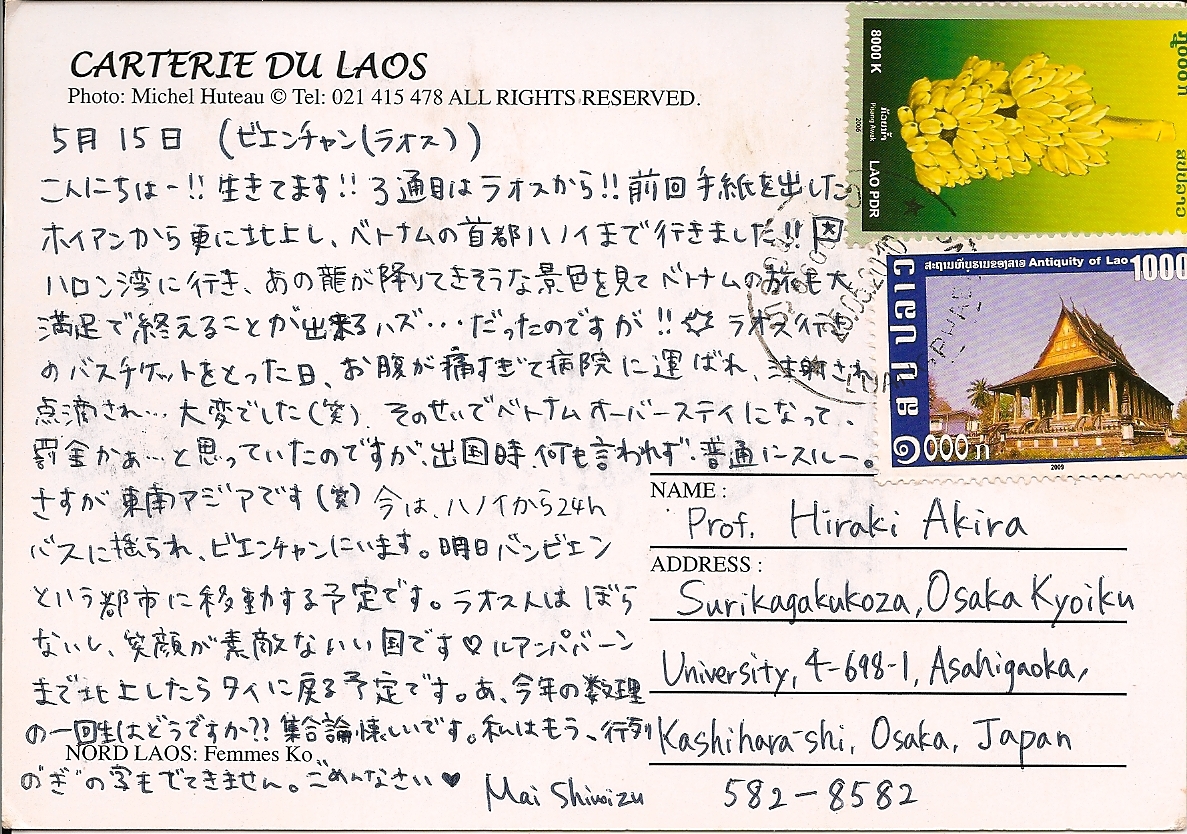 CARTERIE DU LAOS
Photo: Michel Huteau © Tel: 021 415 478 ALL RIGHTS RESERVED.
5月15日 (ビエンチャン(ラオス))
こんにちはー!! 生きてます!! 3通目はラオスから!! 前回手紙を出した
ホイアンから更に北上し、ベトナムの首都ハノイまで行きました!!
ハロン湾に行き、あの龍が降りてきそうな景色を見てベトナムの旅も大
満足で終えることが出来るハズ・・・だったのですが!! ラオス行き
のバスチケットをとった日、お腹が痛すぎて病院に運ばれ、注射され
点滴され… 大変でした(笑). そのせいでベトナムオーバーステイになって、
罰金かぁ…と思っていたのですが、出国時、何も言われず、普通にスルー。
さすが東南アジアです(笑) 今は、ハノイから24h
バスに揺られ、ビエンチャンにいます。明日バンビエン
という都市に移動する予定です。ラオス人はぼら
ないし、笑顔が素敵ないい国です♡ ルアンパバーン
まで北上したらタイに戻る予定です。あ、今年の数理
の一回生はどうですか?? 集合論懐しいです。私はもう、行列
の"ぎ"の字もでてきません。ごめんなさい♥ Mai Shimizu
NORD LAOS: Femmes Ko
NAME :
Prof. Hiraki Akira
ADDRESS :
Surikagakukoza, Osaka Kyoiku
University, 4-698-1, Asahigaoka,
Kashihara-shi, Osaka, Japan
582-8582
8000 K
ກ້ວຍນ້ຳ
Pisang Awak
2006
LAO PDR
Antiquity of Lao
1000
໑000 ກ
2009